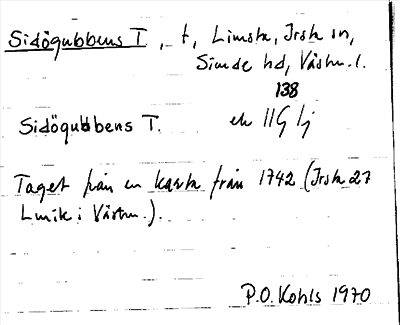 Sidögubbens T, t, Limsta, Irsta sn,
Siende hd, Västm. l.
138
Sidögubbens T. ek 11G lj
Taget från en karta från 1742 (Irsta 27
Lmtk i Västm.).
P.O. Kohls 1970